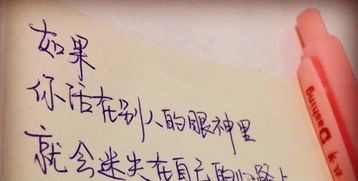 如果
你活在别人的眼神里
就会迷失在自己的心路上
Dashing